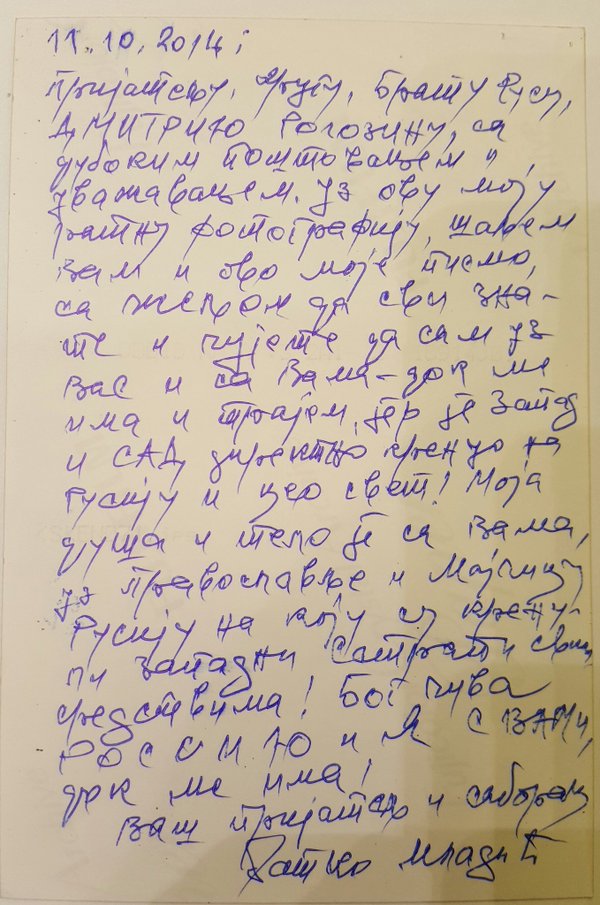 11.10.2014;
Пријатељу, другу, брату Русу,
ДМИТРИЮ РОГОЗИНУ, са
дубоким поштовањем и
уважавањем. Уз ову моју
ратну фотографију, шаљем
Вам и ово моје писмо,
са жељом да сви зна-
те и чујете да сам уз
Вас и са Вама – док ме
има и трајем, јер је Запад
и САД директно кренуо на
Русију и цео свет! Моја
душа и тело је са Вама,
уз православље и Мајчицу
Русију на коју су крену-
ли западни сатрапи свим
средствима! Бог чува
РОССИЮ и Я С ВАМИ,
док ме има!
Ваш пријатељ и саборац
Ратко Младић